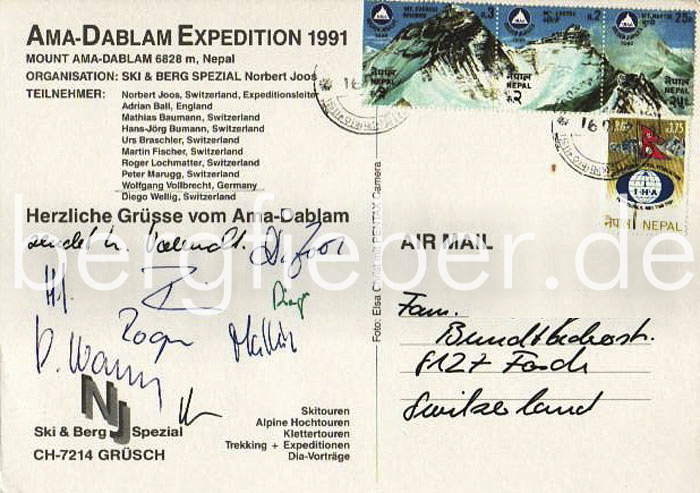 AMA-DABLAM EXPEDITION 1991
MOUNT AMA-DABLAM 6828 m, Nepal
ORGANISATION: SKI & BERG SPEZIAL Norbert Joos
TEILNEHMER: Norbert Joos, Switzerland, Expeditionsleiter
Adrian Ball, England
Mathias Baumann, Switzerland
Hans-Jörg Bumann, Switzerland
Urs Braschler, Switzerland
Martin Fischer, Switzerland
Roger Lochmatter, Switzerland
Peter Marugg, Switzerland
Wolfgang Vollbrecht, Germany
Diego Wellig, Switzerland
Herzliche Grüsse vom Ama-Dablam
sendet
N. Joos
Diego
Roger
NJ
Ski & Berg Spezial
CH-7214 GRÜSCH
Skitouren
Alpine Hochtouren
Klettertouren
Trekking + Expeditionen
Dia-Vorträge
PENTAX Camera
रु.3
नेपाल
NEPAL
रु.2
नेपाल
NEPAL
२
25
नेपाल
NEPAL
२५
16
16
I·H·A
नेपाल NEPAL
AIR MAIL
Fam.
8127 Forch
Switzerland
bergfieber.de